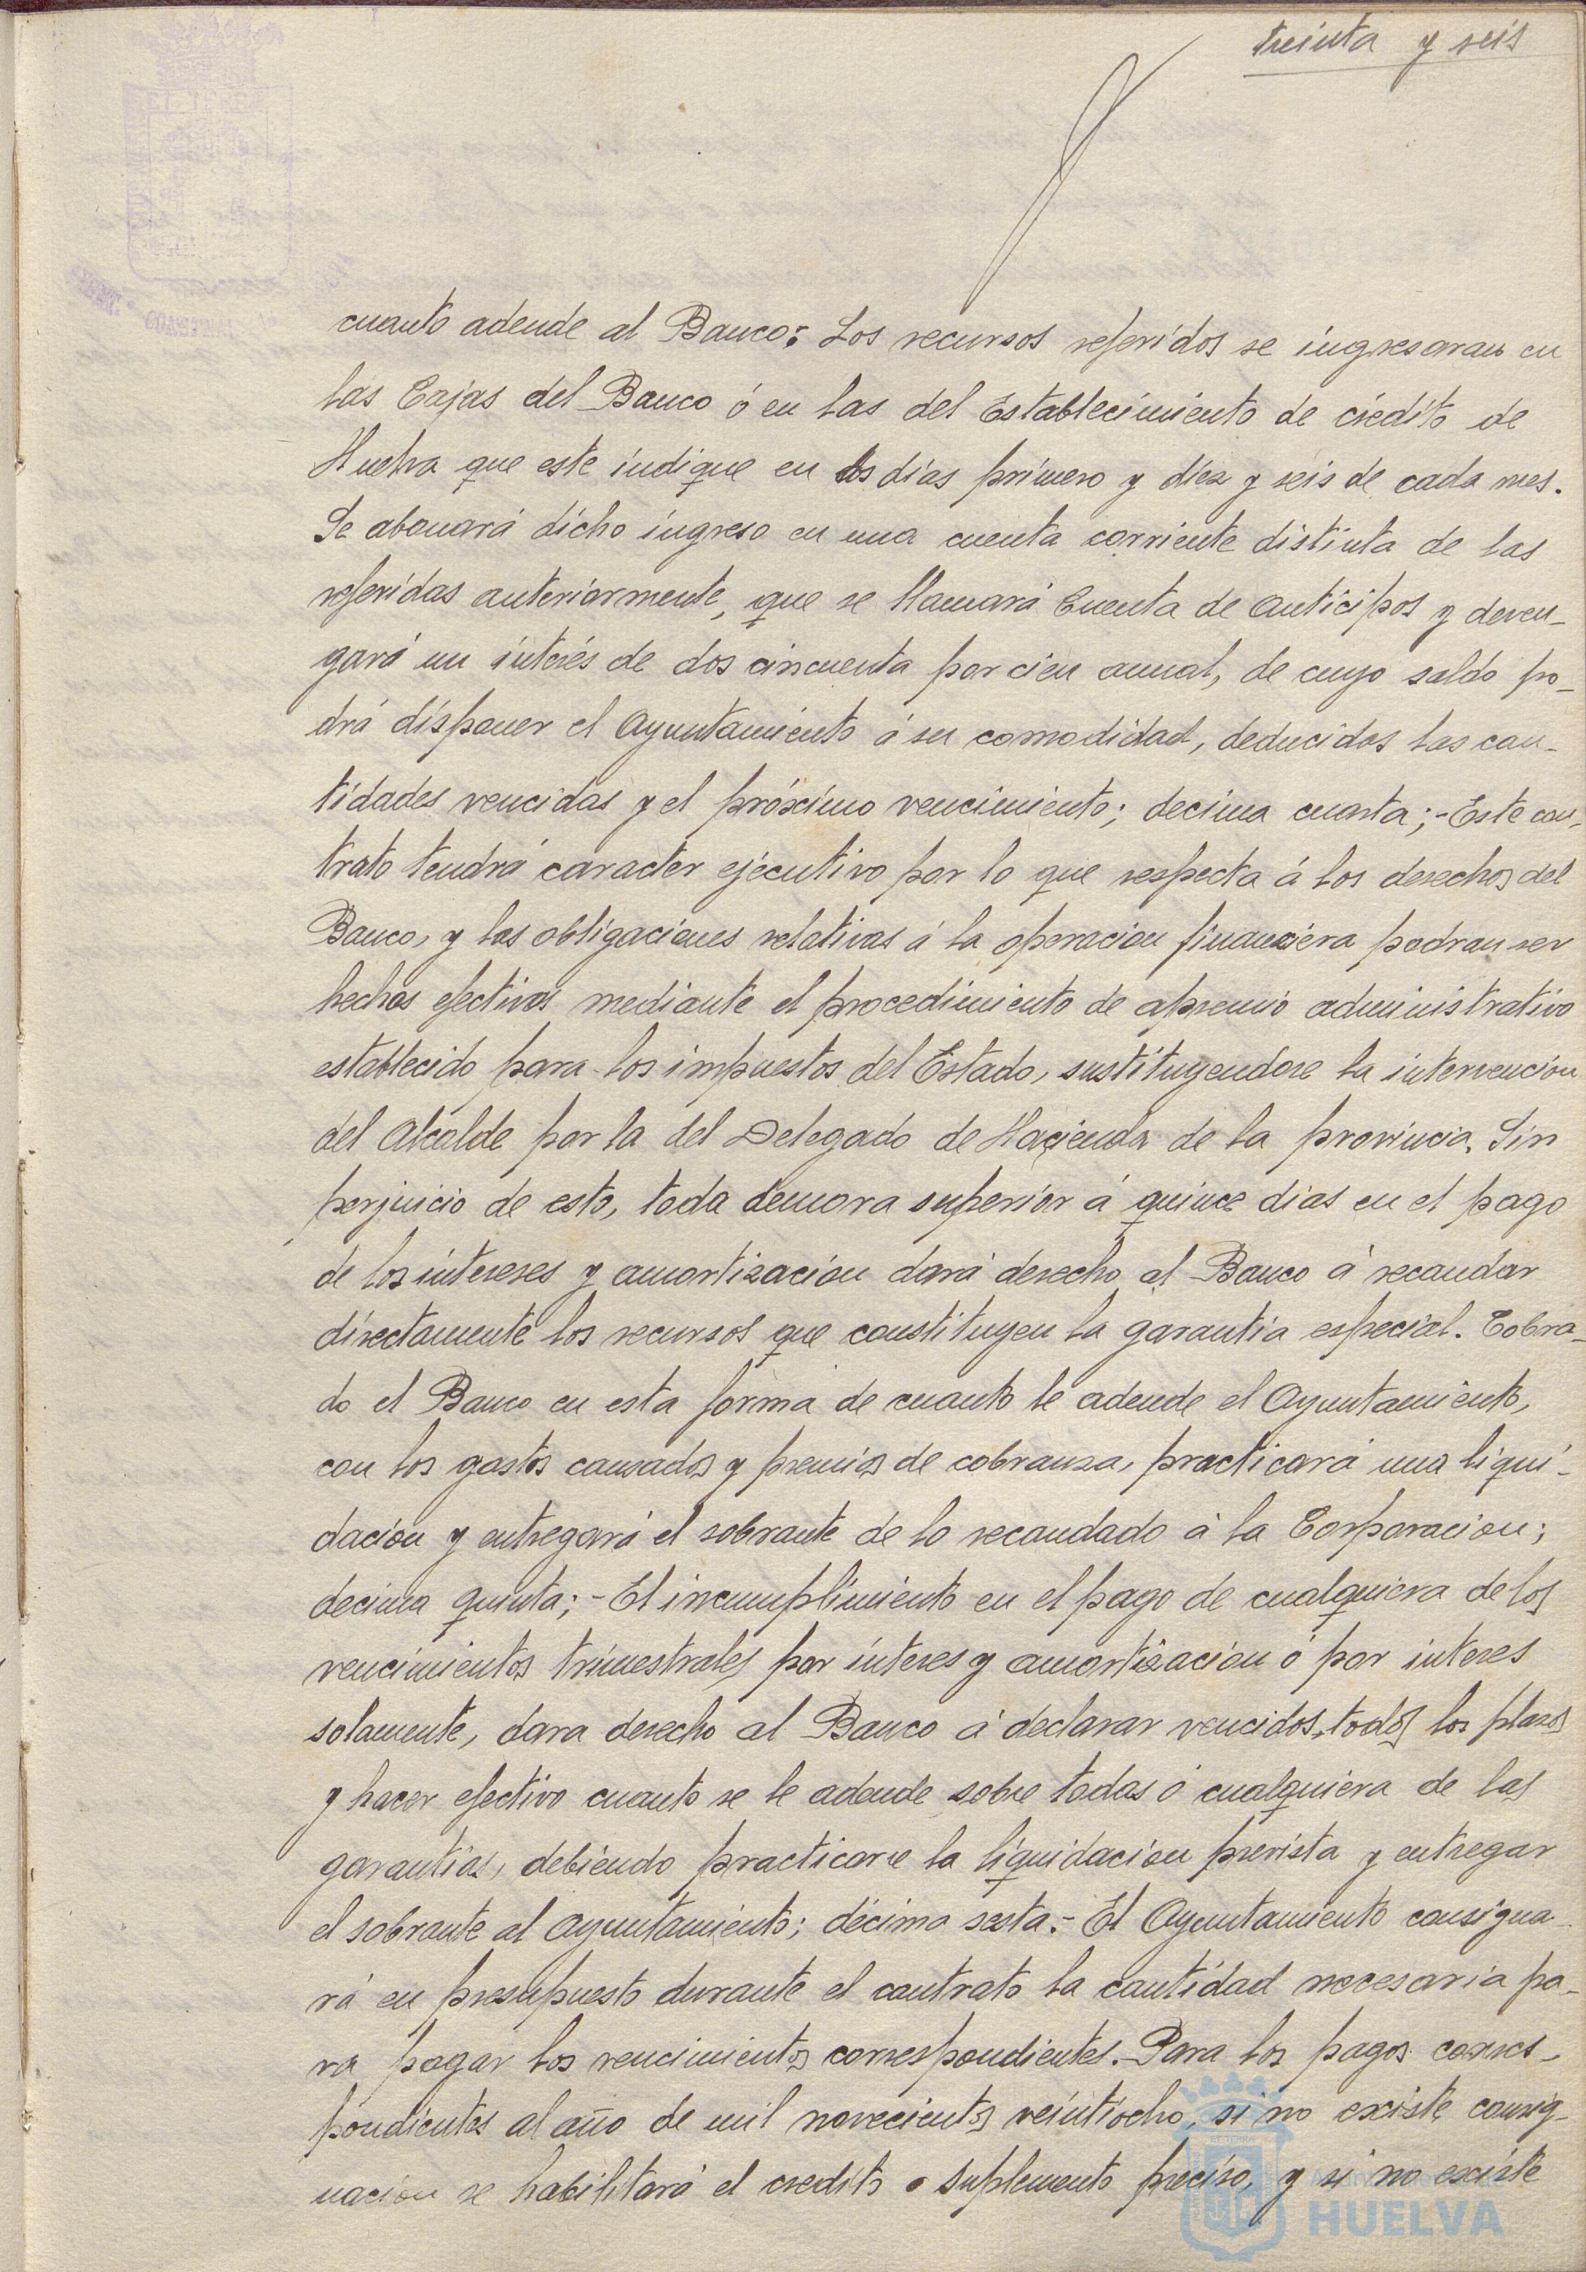 treinta y seis
cuanto adeude al Banco: Los recursos referidos se ingresaran en
las Cajas del Banco ó en las del Establecimiento de crédito de
Huelva que este indique en los días primero y diez y seis de cada mes.
Se abonará dicho ingreso en una cuenta corriente distinta de las
referidas anteriormente, que se llamará Cuenta de Anticipos y deven-
gará un interés de dos cincuenta por cien anual, de cuyo saldo po-
drá disponer el Ayuntamiento á su comodidad, deducidas las can-
tidades vencidas y el próximo vencimiento; decima cuarta;-Este con-
trato tendrá caracter ejecutivo por lo que respecta á los derechos del
Banco, y las obligaciones relativas á la operacion financiera podran ser
hechas efectivas mediante el procedimiento de apremio administrativo
establecido para los impuestos del Estado, sustituyendose la intervencion
del Alcalde por la del Delegado de Hacienda de la provincia. Sin
perjuicio de esto, toda demora superior á quince dias en el pago
de los intereses y amortización dará derecho al Banco á recaudar
directamente los recursos que constituyen la garantia especial. Cobra-
do el Banco en esta forma de cuanto le adeude el Ayuntamiento,
con los gastos causados y premios de cobranza, practicará una liqui-
dación y entregará el sobrante de lo recaudado á la Corporacion;
decima quinta;-El incumplimiento en el pago de cualquiera de los
vencimientos trimestrales por interes y amortizacion ó por interes
solamente, dara derecho al Banco á declarar vencidos todos los plazos
y hacer efectivo cuanto se le adeude sobre todas ó cualquiera de las
garantias, debiendo practicarse la liquidación prevista y entregar
el sobrante al Ayuntamiento; décima sexta.-El Ayuntamiento consigna-
rá en presupuesto durante el contrato la cantidad necesaria pa-
ra pagar los vencimientos correspondientes.-Para los pagos corres-
pondientes al año de mil novecientos veintiocho, si no existe consig-
nación se habilitará el credito o suplemento preciso, y si no existe
HUELVA